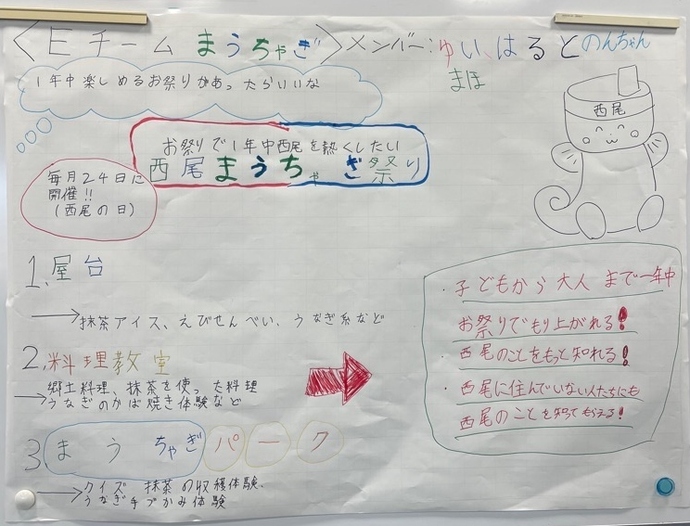 〈Eチーム まうちゃぎ〉メンバー:ゆい、はると のんちゃん
まほ
1年中楽しめるお祭りがあったらいいな
お祭りで1年中西尾を熱くしたい
西尾まうちゃぎ祭り
毎月24日に
開催!!
(西尾の日)
西尾
1、屋台
→抹茶アイス、えびせんべい、うなぎ串など
2.料理教室
→郷土料理、抹茶を使った料理
うなぎのかば焼き体験など
3 まうちゃぎパーク
→クイズ 抹茶の収穫体験、
うなぎ手づかみ体験
・子どもから大人まで一年中
お祭りでもり上がれる!
・西尾のことをもっと知れる!
・西尾に住んでいない人たちにも
西尾のことを知ってもらえる!